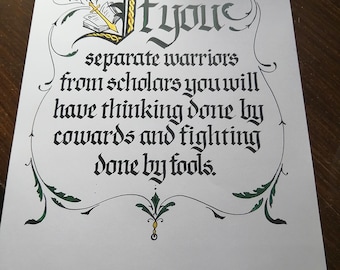 If you
separate warriors
from scholars you will
have thinking done by
cowards and fighting
done by fools.